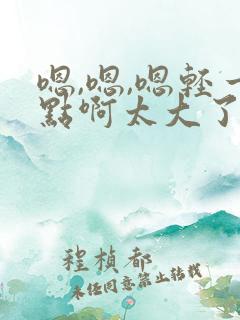 嗯,嗯,嗯輕一
點啊太大了
程楨都
未经同意禁止转载